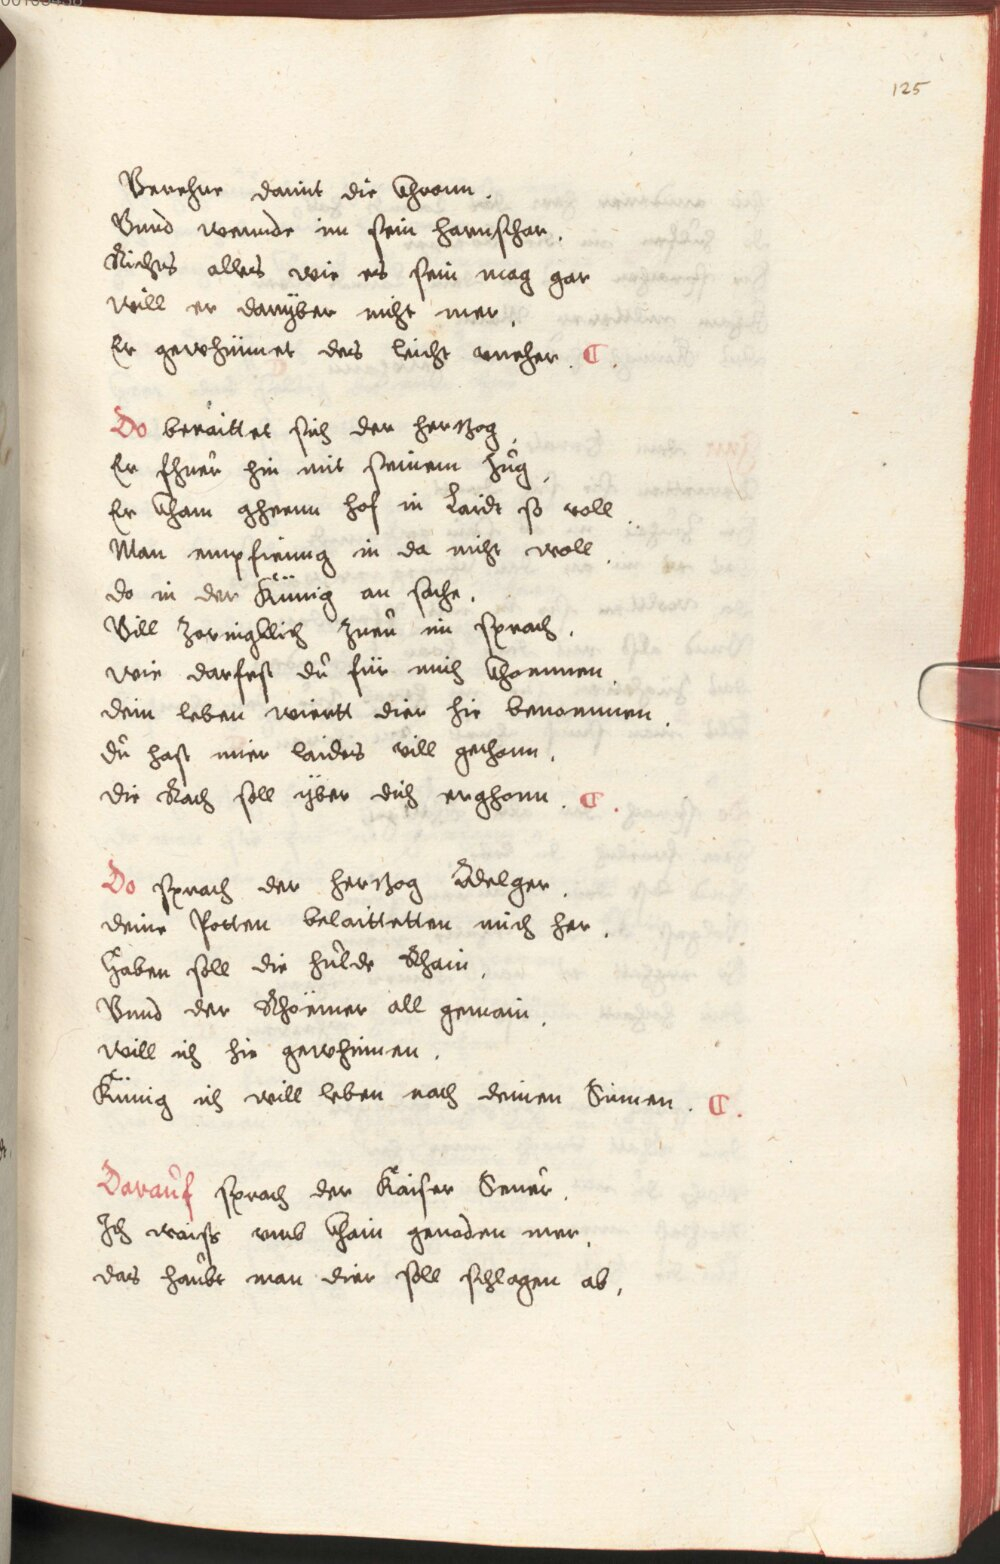 125
Verehre damit die Chronn.
Vnnd wennde im sein harnschar.
Richts alles wie es sein mag gar
will er darÿber nicht mer.
Er gewhinnet des leicht vneher. C.
Do beraittet sich der hertzog,
Er fhuer hin mit seinem Zug,
Er Cham ghenn hof in Laidt so voll.
Man empfienng in da nicht woll.
do in der Künig an sache.
Vill Zornigklich Zueu im sprach.
wie darfest du für mich Chommen.
dein leben wiertt dier hie benommen.
du hast mier laides vill gethonn.
die Rach soll ÿber dich erghonn. C.
Do sprach der hertzog Adelger.
deine Potten belaittetten mich her.
Haben soll die hulde Khain.
Vnnd der Rhömer all gemain.
will ich hie gewhinnen.
Künig ich will leben nach deinen Sinnen. C.
Darauf sprach der Kaiser Seuer.
Ich waiß vmb Chain genaden mer.
das haubt man dier soll schlagen ab.